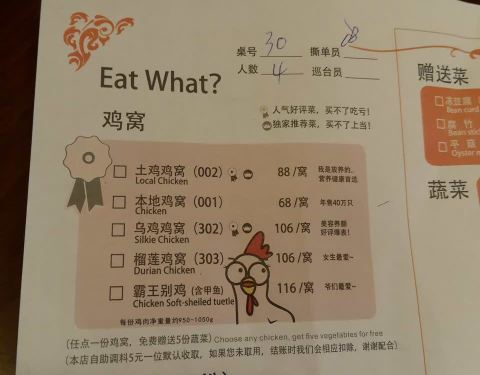 桌号 30 撕单员
人数 4 巡台员
Eat What?
鸡窝
人气好评菜，买不了吃亏！
独家推荐菜，买不了上当！
土鸡鸡窝（002） 88/窝 我是放养的，
Local Chicken 营养健康首选
本地鸡窝（001） 68/窝 年售40万只
Chicken
乌鸡鸡窝（302） 106/窝 美容养颜
Silkie Chicken 好评爆表！
榴莲鸡窝（303） 106/窝 女生最爱~
Durian Chicken
霸王别鸡（含甲鱼） 116/窝 爷们最爱~
Chicken Soft-sheiled tuetle
每份鸡肉净重量约950-1050g
（任点一份鸡窝，免费赠送5份蔬菜）Choose any chicken, get five vegetables for free
（本店自助调料5元一位默认收取，如果您未取用，结账时我们会相应扣除，谢谢配合）
赠送菜
冻豆腐
Bean curd
腐竹
Bean stick
平菇
Oyster m
蔬菜